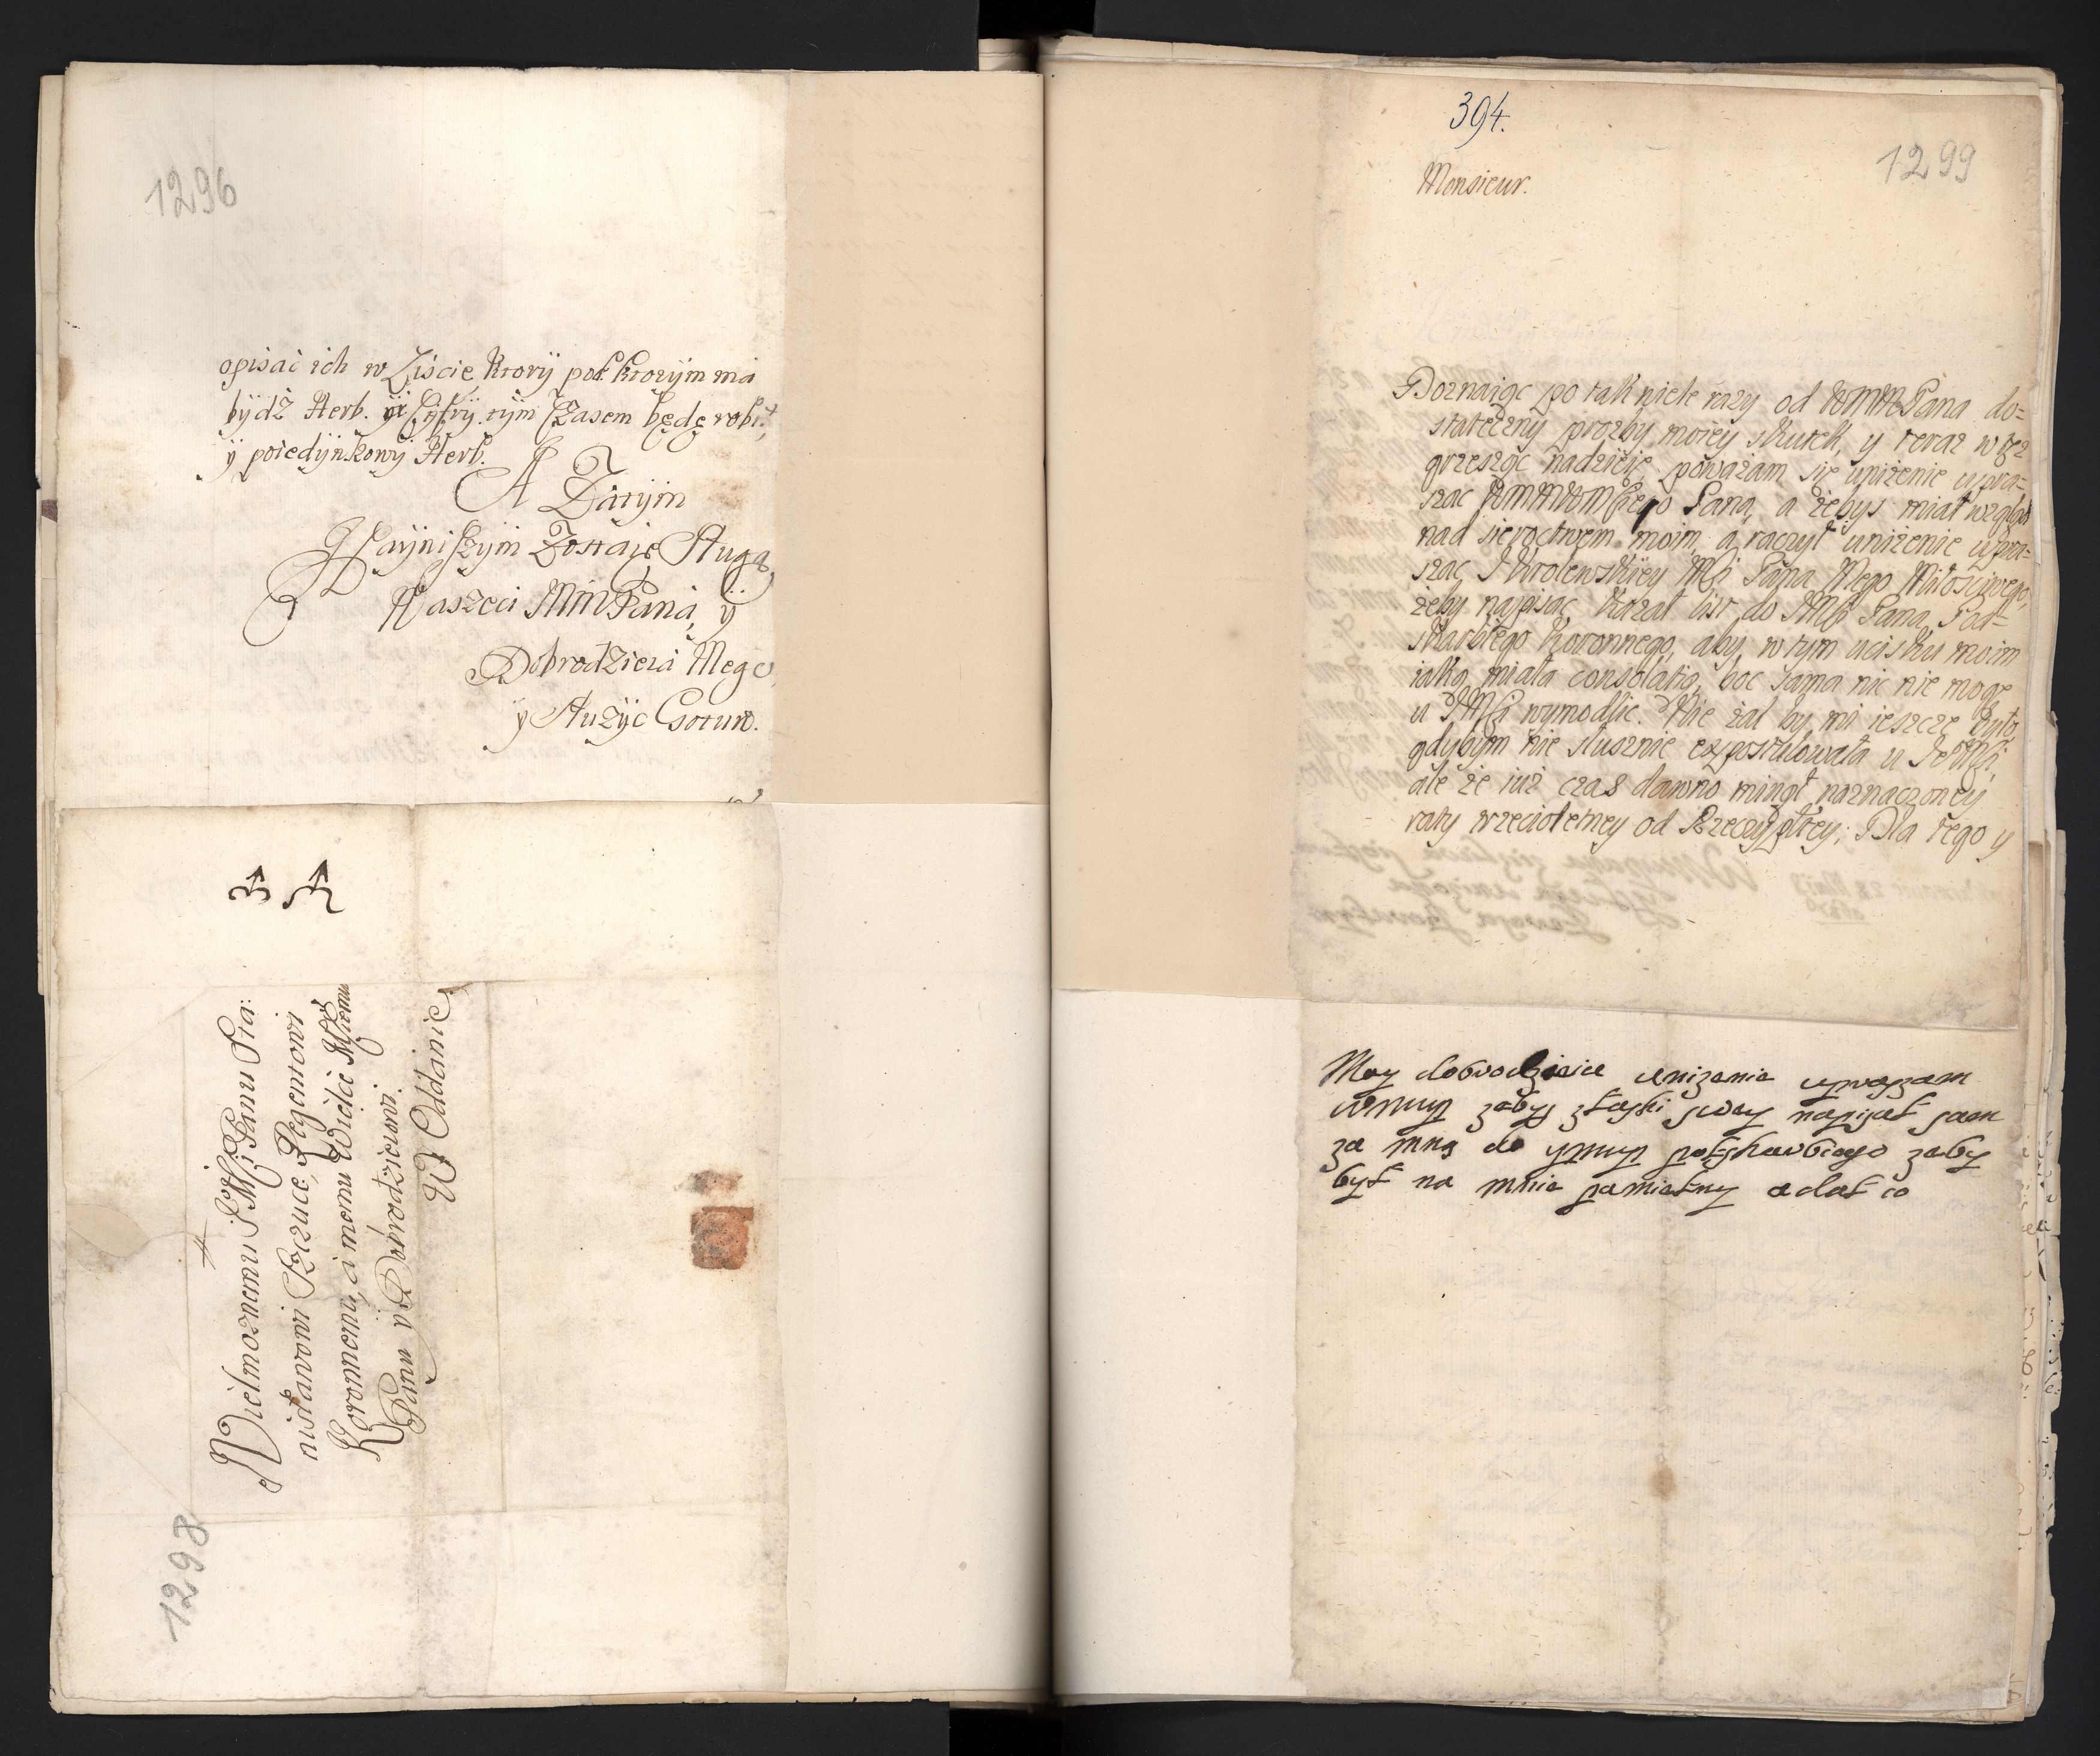 1296
opisać ich w Liście, ktory pod ktorym ma
bydź Herb. Cyfry tym Czasem będę robił,
y poiedynkowy Herb.
A Zatym
Nayniszym Zostaię Sługą
Waszeci MMPana, y
Dobrodzieia Mego,
y służyc Gotuw.
Wielmoznemu JMCi Panu Sta:
nisławowi Rzczuce, Regentowi
Koronnemu, a memu Wielce MCiemu
Panu y Dobrodzieiowi.
W Oddanie
1298
394.
1299
Monsieur.
Doznaiąc po tak wiele razy od WMMPana do=
stateczny prozby moiey skutek, y teraz w tez
grzesząc nadzieię powazam się unizenie upra=
szac Pana, a zebys miał wzgląd
nad sieroctwem moim, a raczył unizenie upra=
szac Krolewskiey Mci Pana Mego Miłosciwego,
zeby napisac kazał list do JMCi Pana Pod=
skarbiego Koronnego, aby w tym ucisku moim
iaką miała consolatią, boc sama nic nie mogę
u JMCi wymodlic. Nie zal by mi ieszcze było,
gdybym nie słusznie expostulowała u JeMCi,
ale że iuż czas dawno minął naznaczoney
raty trzecioletney od Rzeczyptey; Dla tego y
Moy dobrodzieiu unizenie uprazam
wmmp zebys złaski swey napisał sam
za mną do ymmp potskarbiego zeby
był na mnie pamietny a dał co